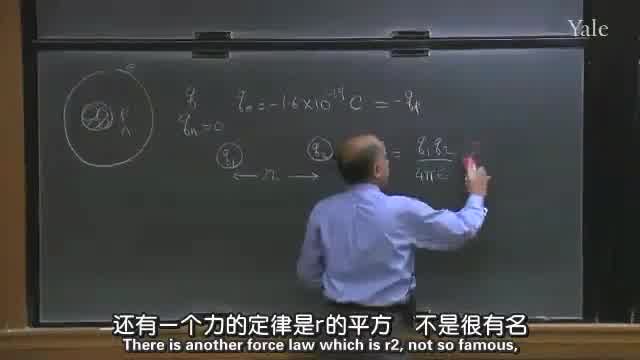 Yale
q qₑ = -1.6 × 10⁻¹⁹ C = -qₚ
qₙ = 0
q₁ q₂ = q₁q₂
r 4πε
还有一个力的定律是r的平方 不是很有名
There is another force law which is r2, not so famous,